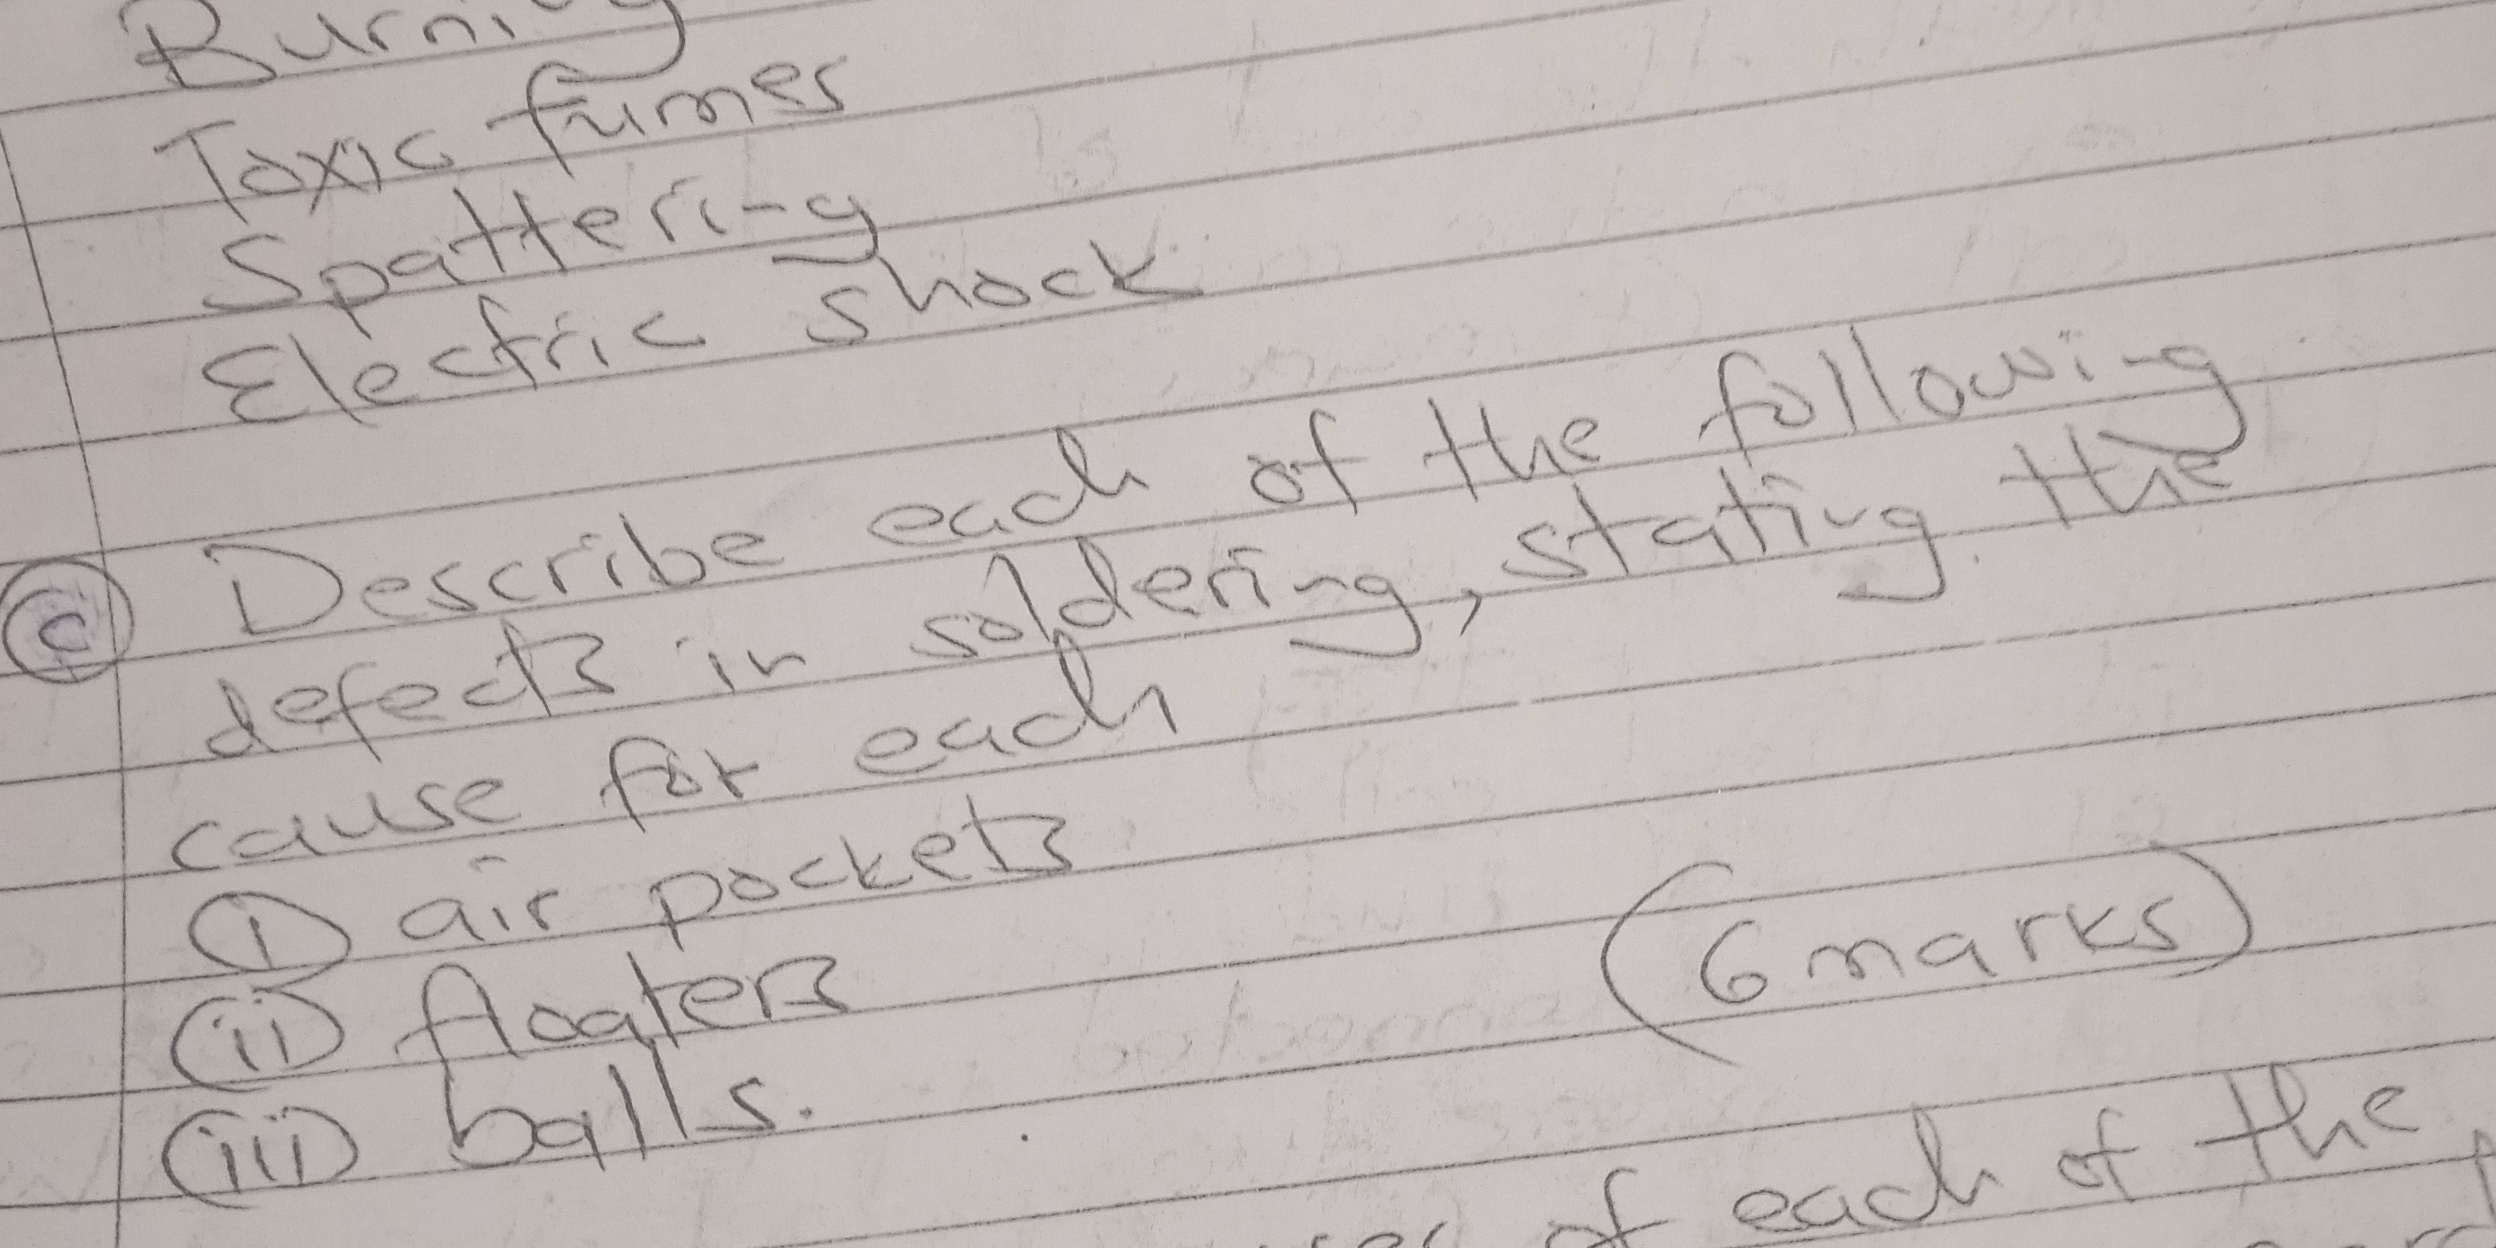 Burning
Toxic fumes
Spattering
Electric shock
(c) Describe each of the following
defects in soldering, stating the
cause for each
(i) air pockets
(ii) floaters
(6 marks)
(iii) balls.
of each of the